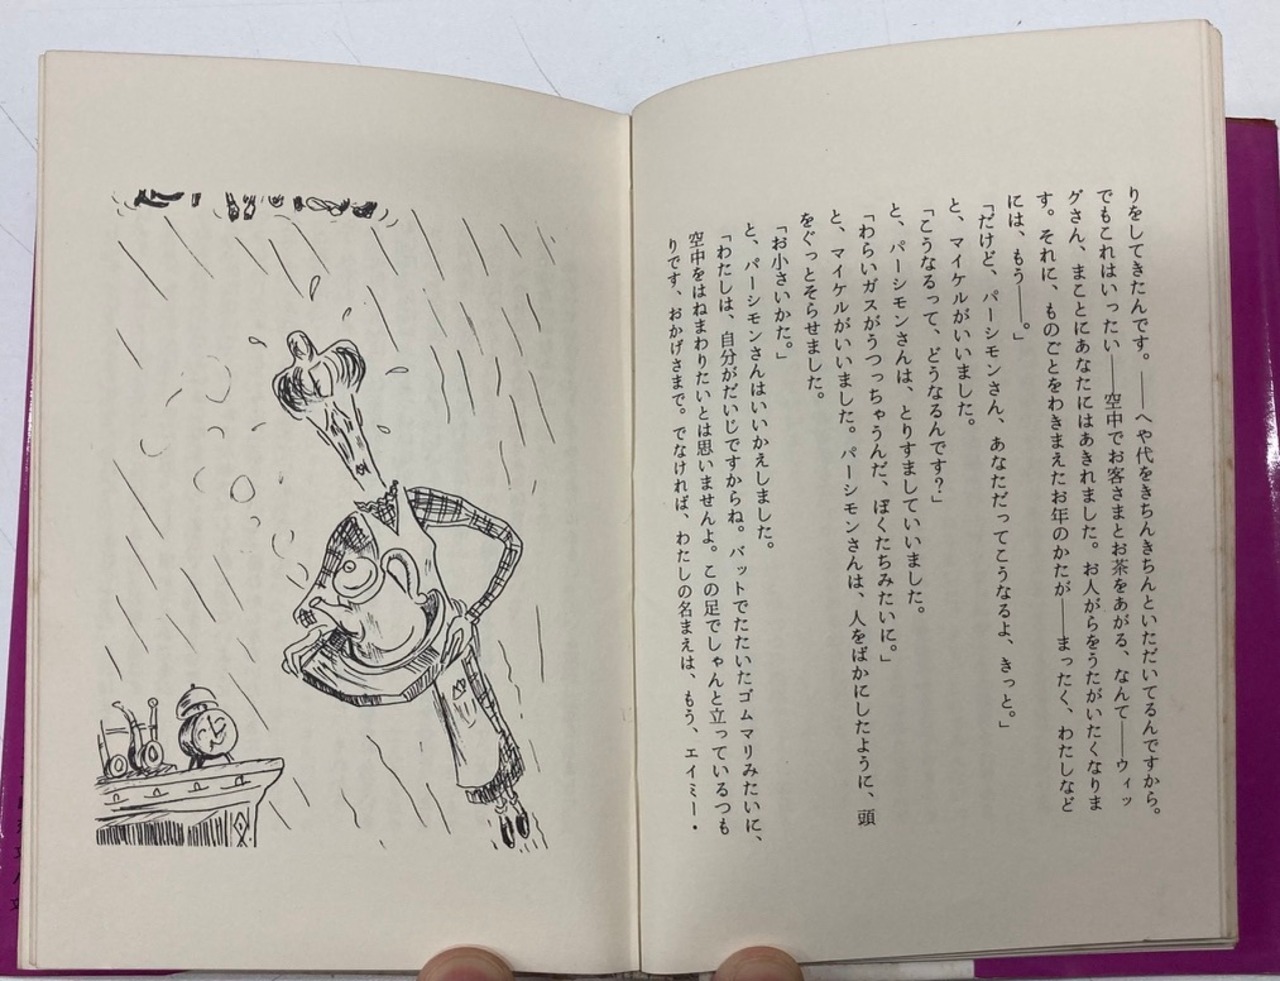 りをしてきたんです。――へや代をきちんきちんといただいてるんですから。
でもこれはいったい――空中でお客さまとお茶をあがる、なんて――ウィッ
グさん、まことにあなたにはあきれました。お人がらをうたがいたくなりま
す。それに、ものごとをわきまえたお年のかたが――まったく、わたしなど
には、もう――。」
「だけど、パーシモンさん、あなただってこうなるよ、きっと。」
と、マイケルがいいました。
「こうなるって、どうなるんです?」
と、パーシモンさんは、とりすましていいました。
「わらいガスがうつっちゃうんだ、ぼくたちみたいに。」
と、マイケルがいいました。パーシモンさんは、人をばかにしたように、頭
をぐっとそらせました。
「お小さいかた。」
と、パーシモンさんはいいかえしました。
「わたしは、自分がだいじですからね。バットでたたいたゴムマリみたいに、
空中をはねまわりたいとは思いませんよ。この足でしゃんと立っているつも
りです、おかげさまで。でなければ、わたしの名まえは、もう、エイミー・